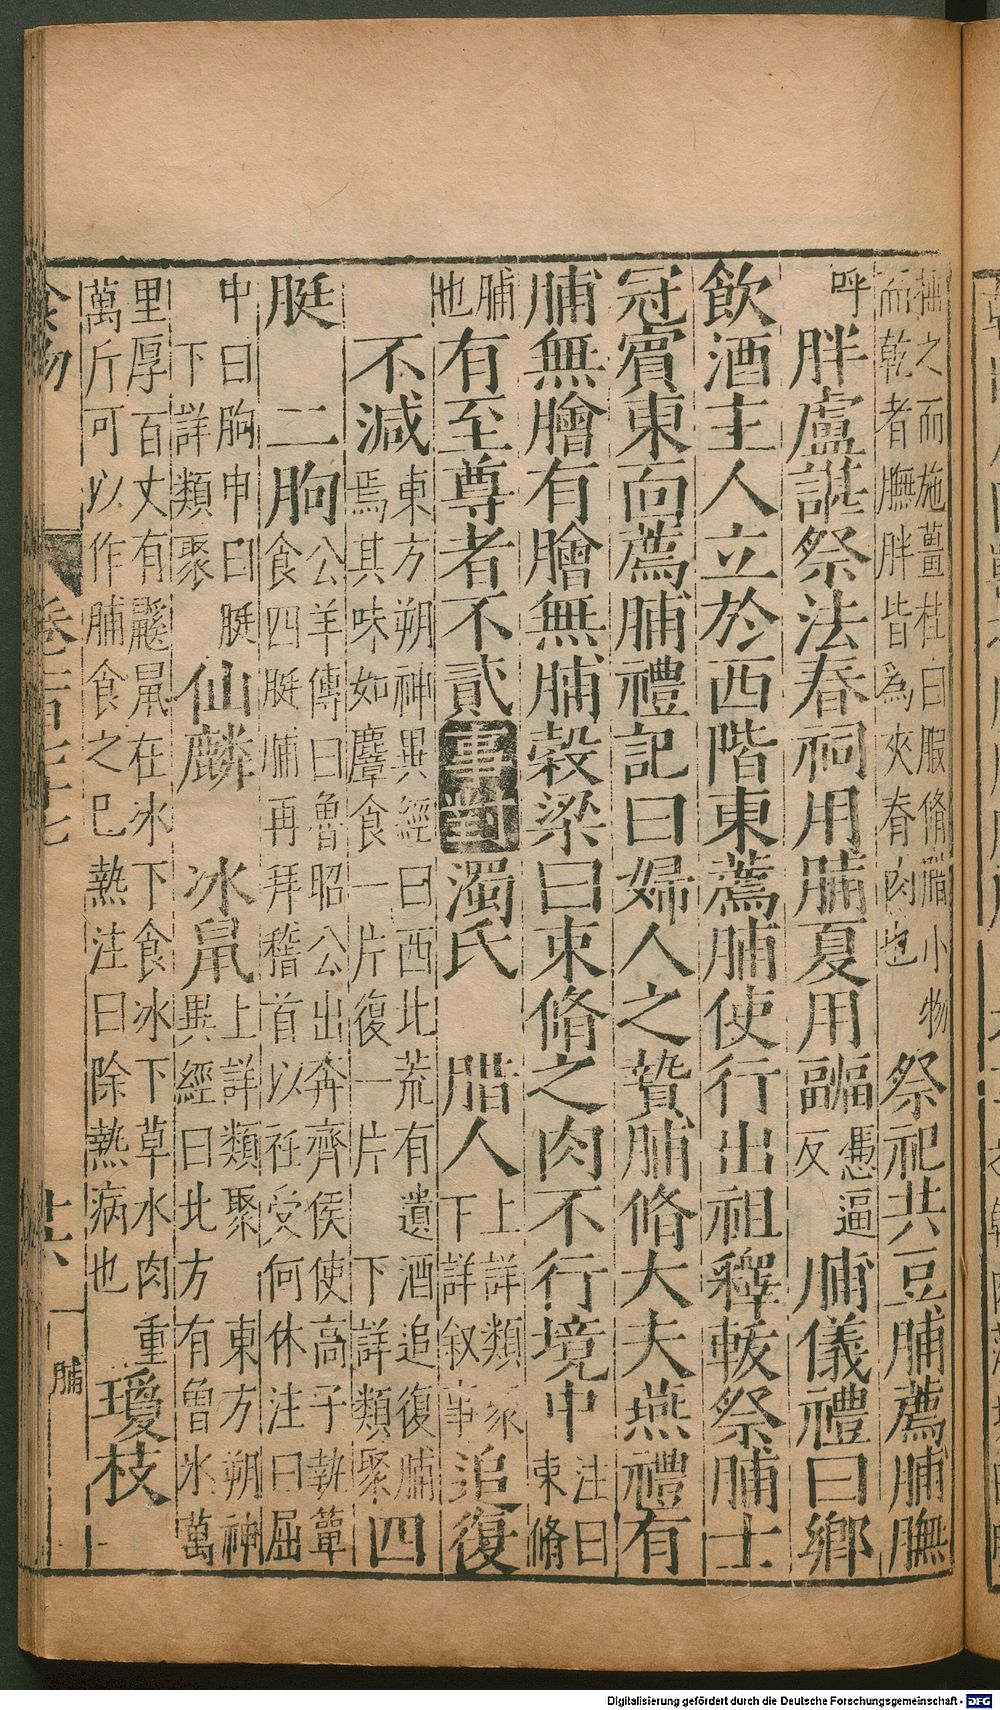 捶之而施薑桂曰腶脩腊小物
而乾者膴胖皆為夾脊肉也
祭祀共豆脯薦脯膴
呼
胖盧諶祭法春祠用脯夏用
憑逼
反
脯儀禮曰鄉
飲酒主人立於西階東薦脯使行出祖釋軷祭脯士
冠賓東面薦脯禮記曰婦人之贄脯脩大夫燕禮有
脯無膾有膾無脯穀梁曰束脩之肉不行境中
注曰
束脩
脯
也
有至尊者不貳事對濁氏 腊人
上詳類聚
下詳叙事
追復
不減
東方朔神異經曰西北荒有遺酒追復脯
焉其味如麞食一片復一片 下詳類聚
四
脡 二朐
公羊傳曰魯昭公出奔齊侯使高子執簞
食四脡脯再拜稽首以衽受何休注曰屈
中曰朐申曰脡
下詳類聚
仙麟 冰鼠
上詳類聚 東方朔神
異經曰北方有曾冰萬
里厚百丈有鼷鼠在冰下食冰下草水肉重
萬斤可以作脯食之已熱注曰除熱病也
瓊枝
脯
Digitalisierung gefördert durch die Deutsche Forschungsgemeinschaft - DFG